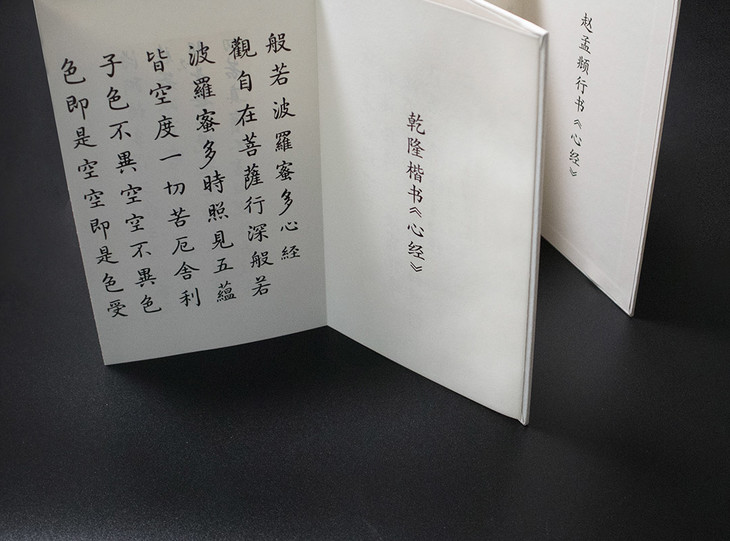 赵孟頫行书《心经》
乾隆楷书《心经》
般若波羅蜜多心経
觀自在菩薩行深般若
波羅蜜多時照見五蘊
皆空度一切苦厄舍利
子色不異空空不異色
色即是空空即是色受